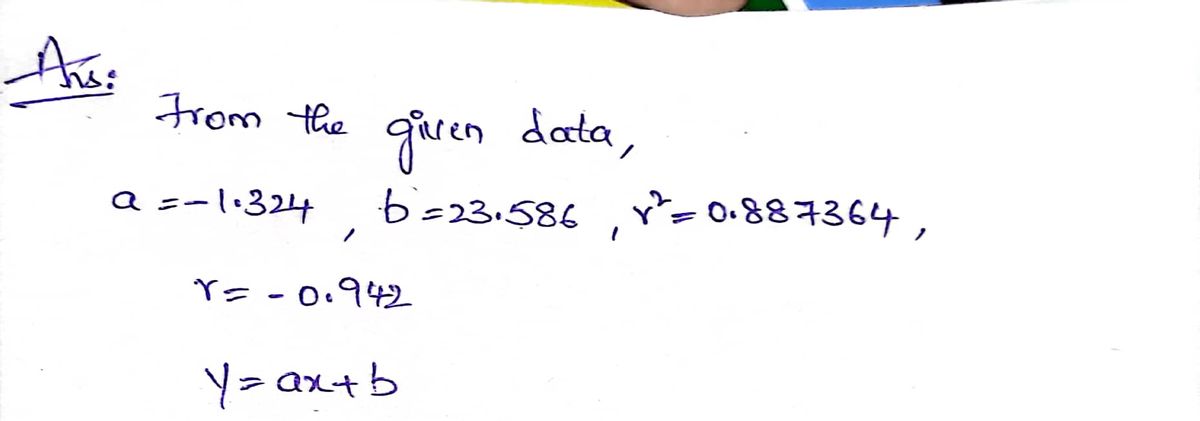 Ans:
From the given data,
a = -1.324 , b = 23.586 , r² = 0.887364 ,
r = -0.942
y = ax+b